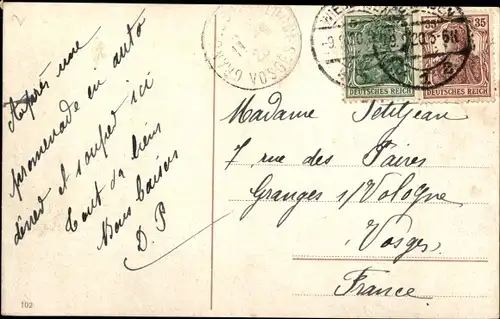 2
Après une
promenade en auto
dîner et souper ici
Tout va bien
Bons baisers
D. P
GRANGES
VOSGES
5
DEUTSCHES REICH
35 35
DEUTSCHES REICH
Madame Petitjean
7, rue des Paires
Granges s/Vologne
Vosges
France
102